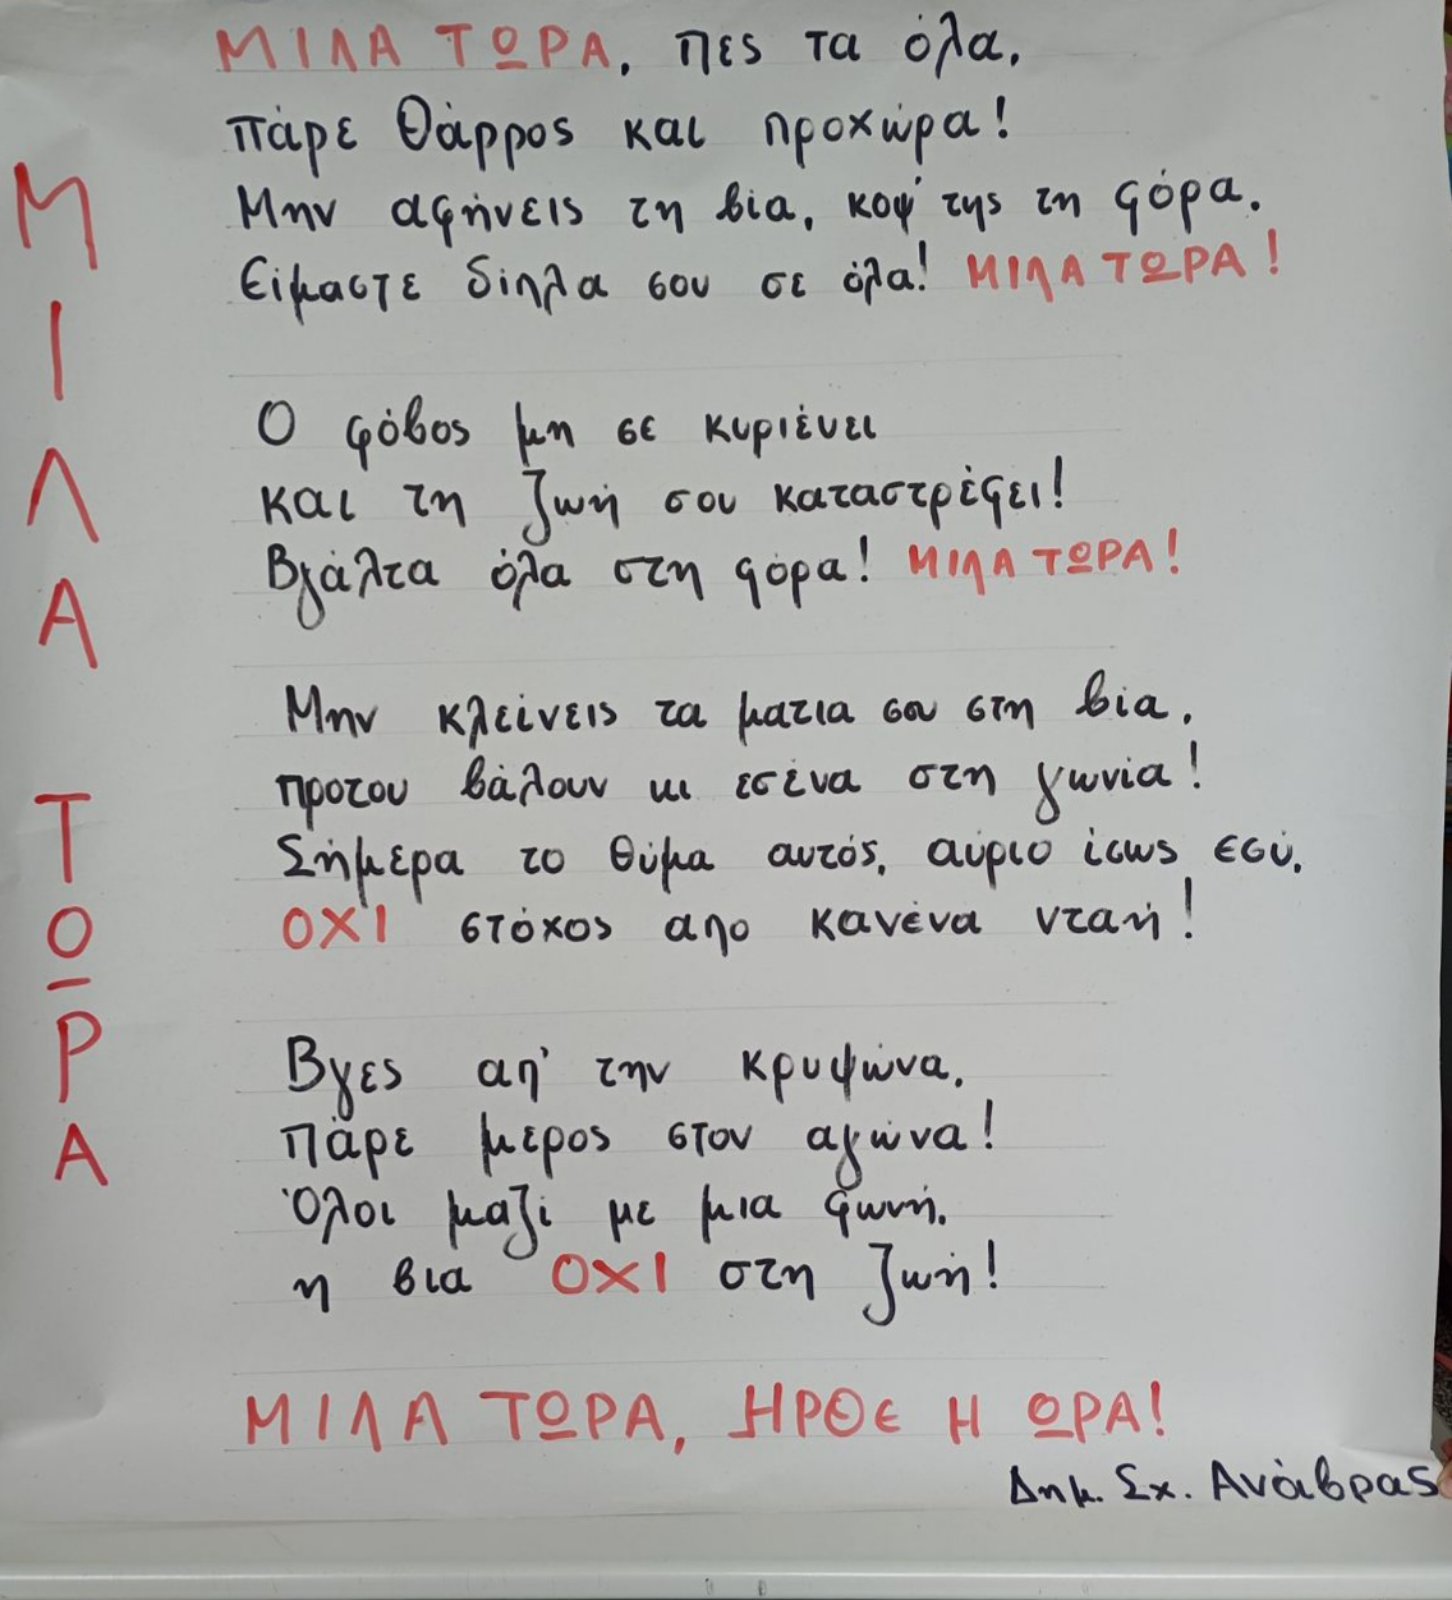 ΜΙΛΑ ΤΩΡΑ
ΜΙΛΑ ΤΩΡΑ, πες τα όλα,
πάρε θάρρος και προχώρα!
Μην αφήνεις τη βία, κοψ' της τη φόρα.
Είμαστε δίπλα σου σε όλα! ΜΙΛΑ ΤΩΡΑ!
Ο φόβος μη σε κυριέυει
και τη ζωή σου καταστρέφει!
Βγάλτα όλα στη φόρα! ΜΙΛΑ ΤΩΡΑ!
Μην κλείνεις τα ματια σου στη βία,
προτου βάλουν κι εσένα στη γωνία!
Σήμερα το θύμα αυτός, αύριο ίσως εσύ,
ΟΧΙ στόχος απο κανένα νταή!
Βγες απ' την κρυψώνα,
Πάρε μερος στον αγώνα!
Όλοι μαζί με μια φωνή,
η βια ΟΧΙ στη ζωή!
ΜΙΛΑ ΤΩΡΑ, ΗΡΘΕ Η ΩΡΑ!
Δημ. Σχ. Ανάβρας